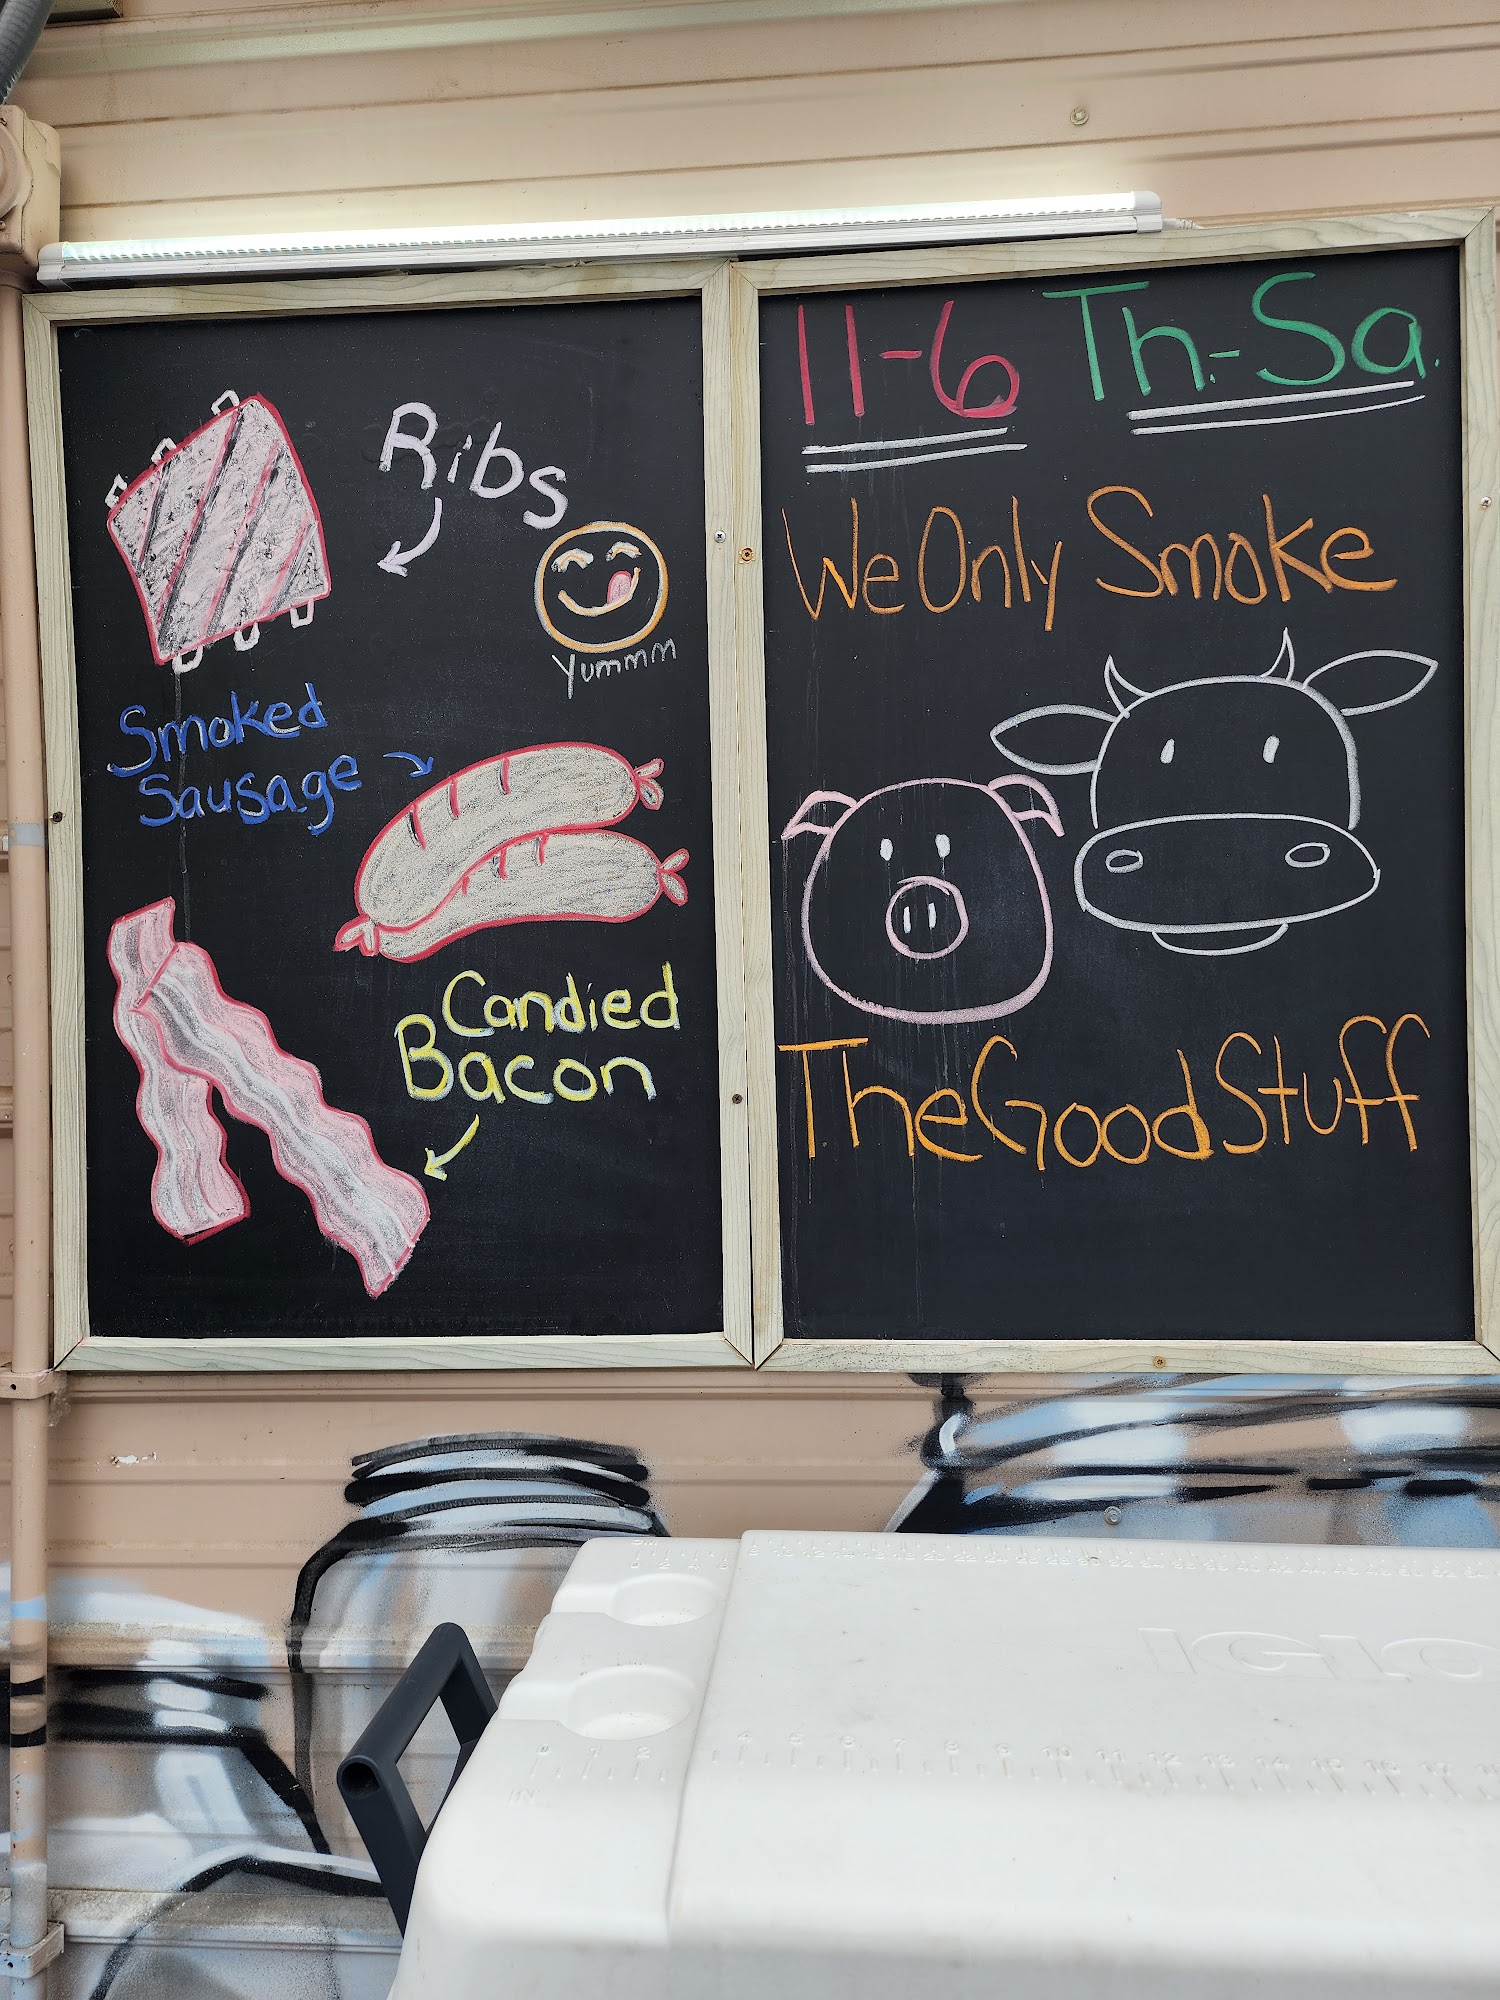 Ribs
Yummm
Smoked
Sausage
Candied
Bacon
11-6 Th-Sa.
We Only Smoke
The Good Stuff